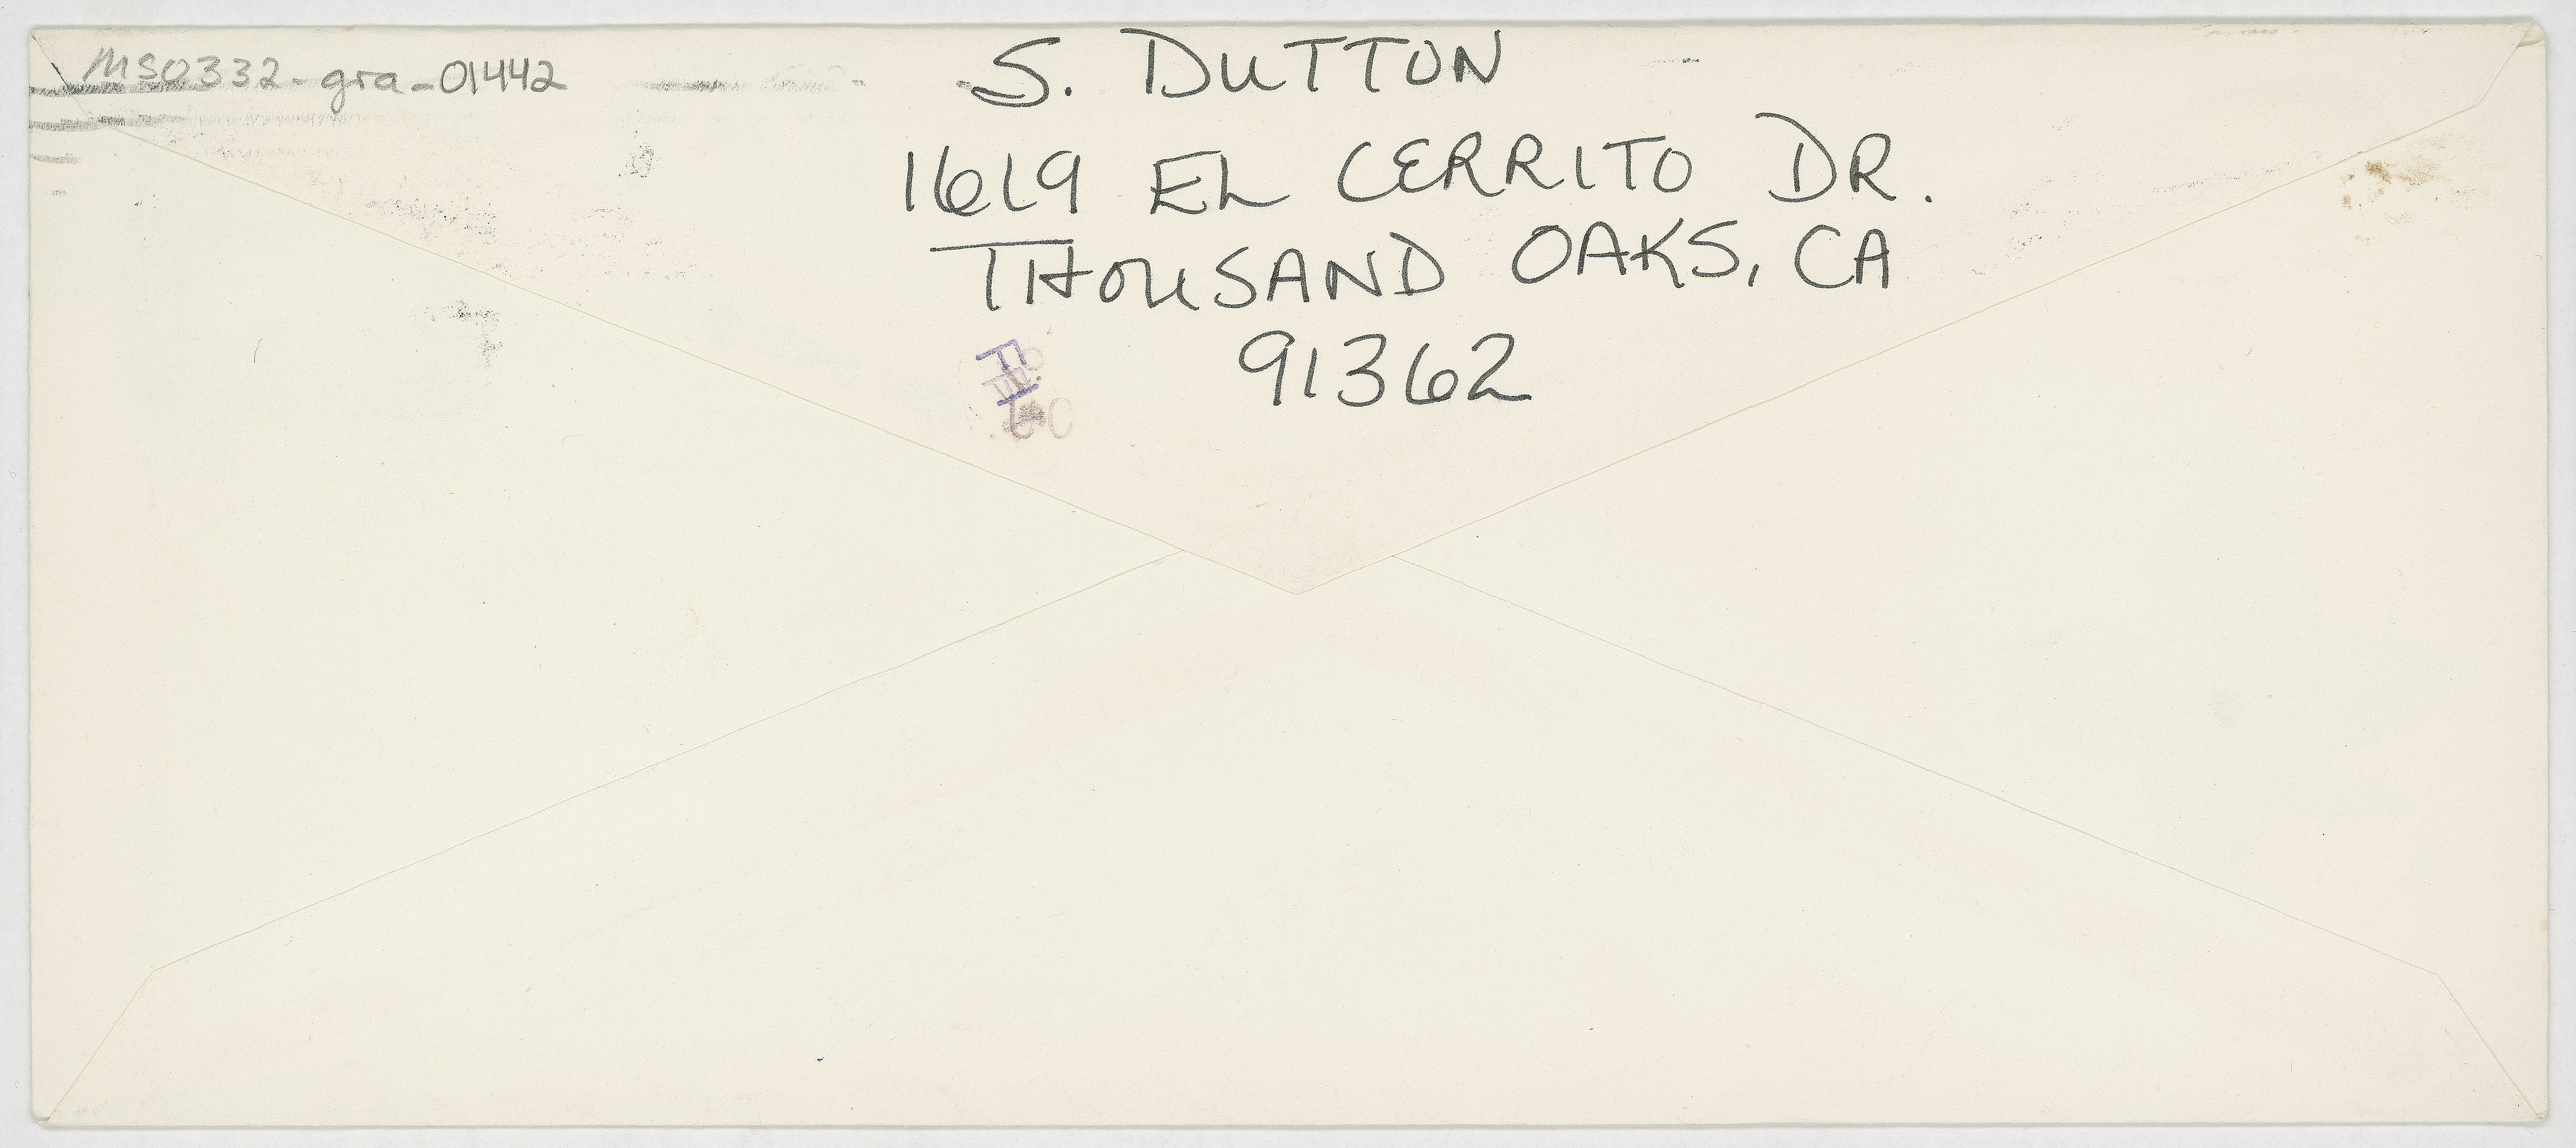 MS0332-gra-01442
S. DUTTON
1619 EL CERRITO DR.
THOUSAND OAKS, CA
91362